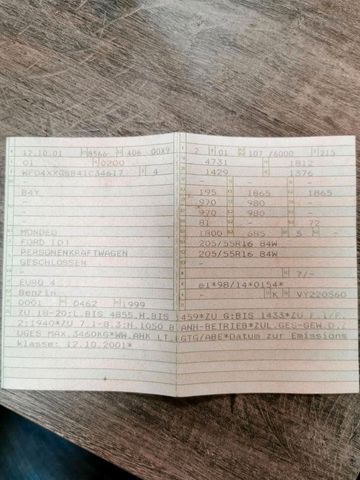 12.10.01 8566 406 00X9
01 0200
4
-
B4Y
-
-
MONDEO
FORD (D)
PERSONENKRAFTWAGEN
GESCHLOSSEN
-
EURO 4
Benzin
0001 0462 1999
2 01 107 /6000 215
4731 1812
1429 1376
-
195 1865 1865
970 980 -
970 980 -
81 - 72
1800 685 5 -
205/55R16 B4W
205/55R16 B4W
-
-
7/-
e1*98/14*0154*
- K
ZU 18-20:L.BIS 4855,H.BIS 1459*ZU G:BIS 1433*ZU F.1/F.
2:1940*ZU 7.1-8.3:H.1050 B.ANH-BETRIEB*ZUL.GES-GEW.D.
ZUGES MAX.3460KG*WW.AHK LT.EGTG/ABE*Datum zur Emissions
klasse: 12.10.2001*